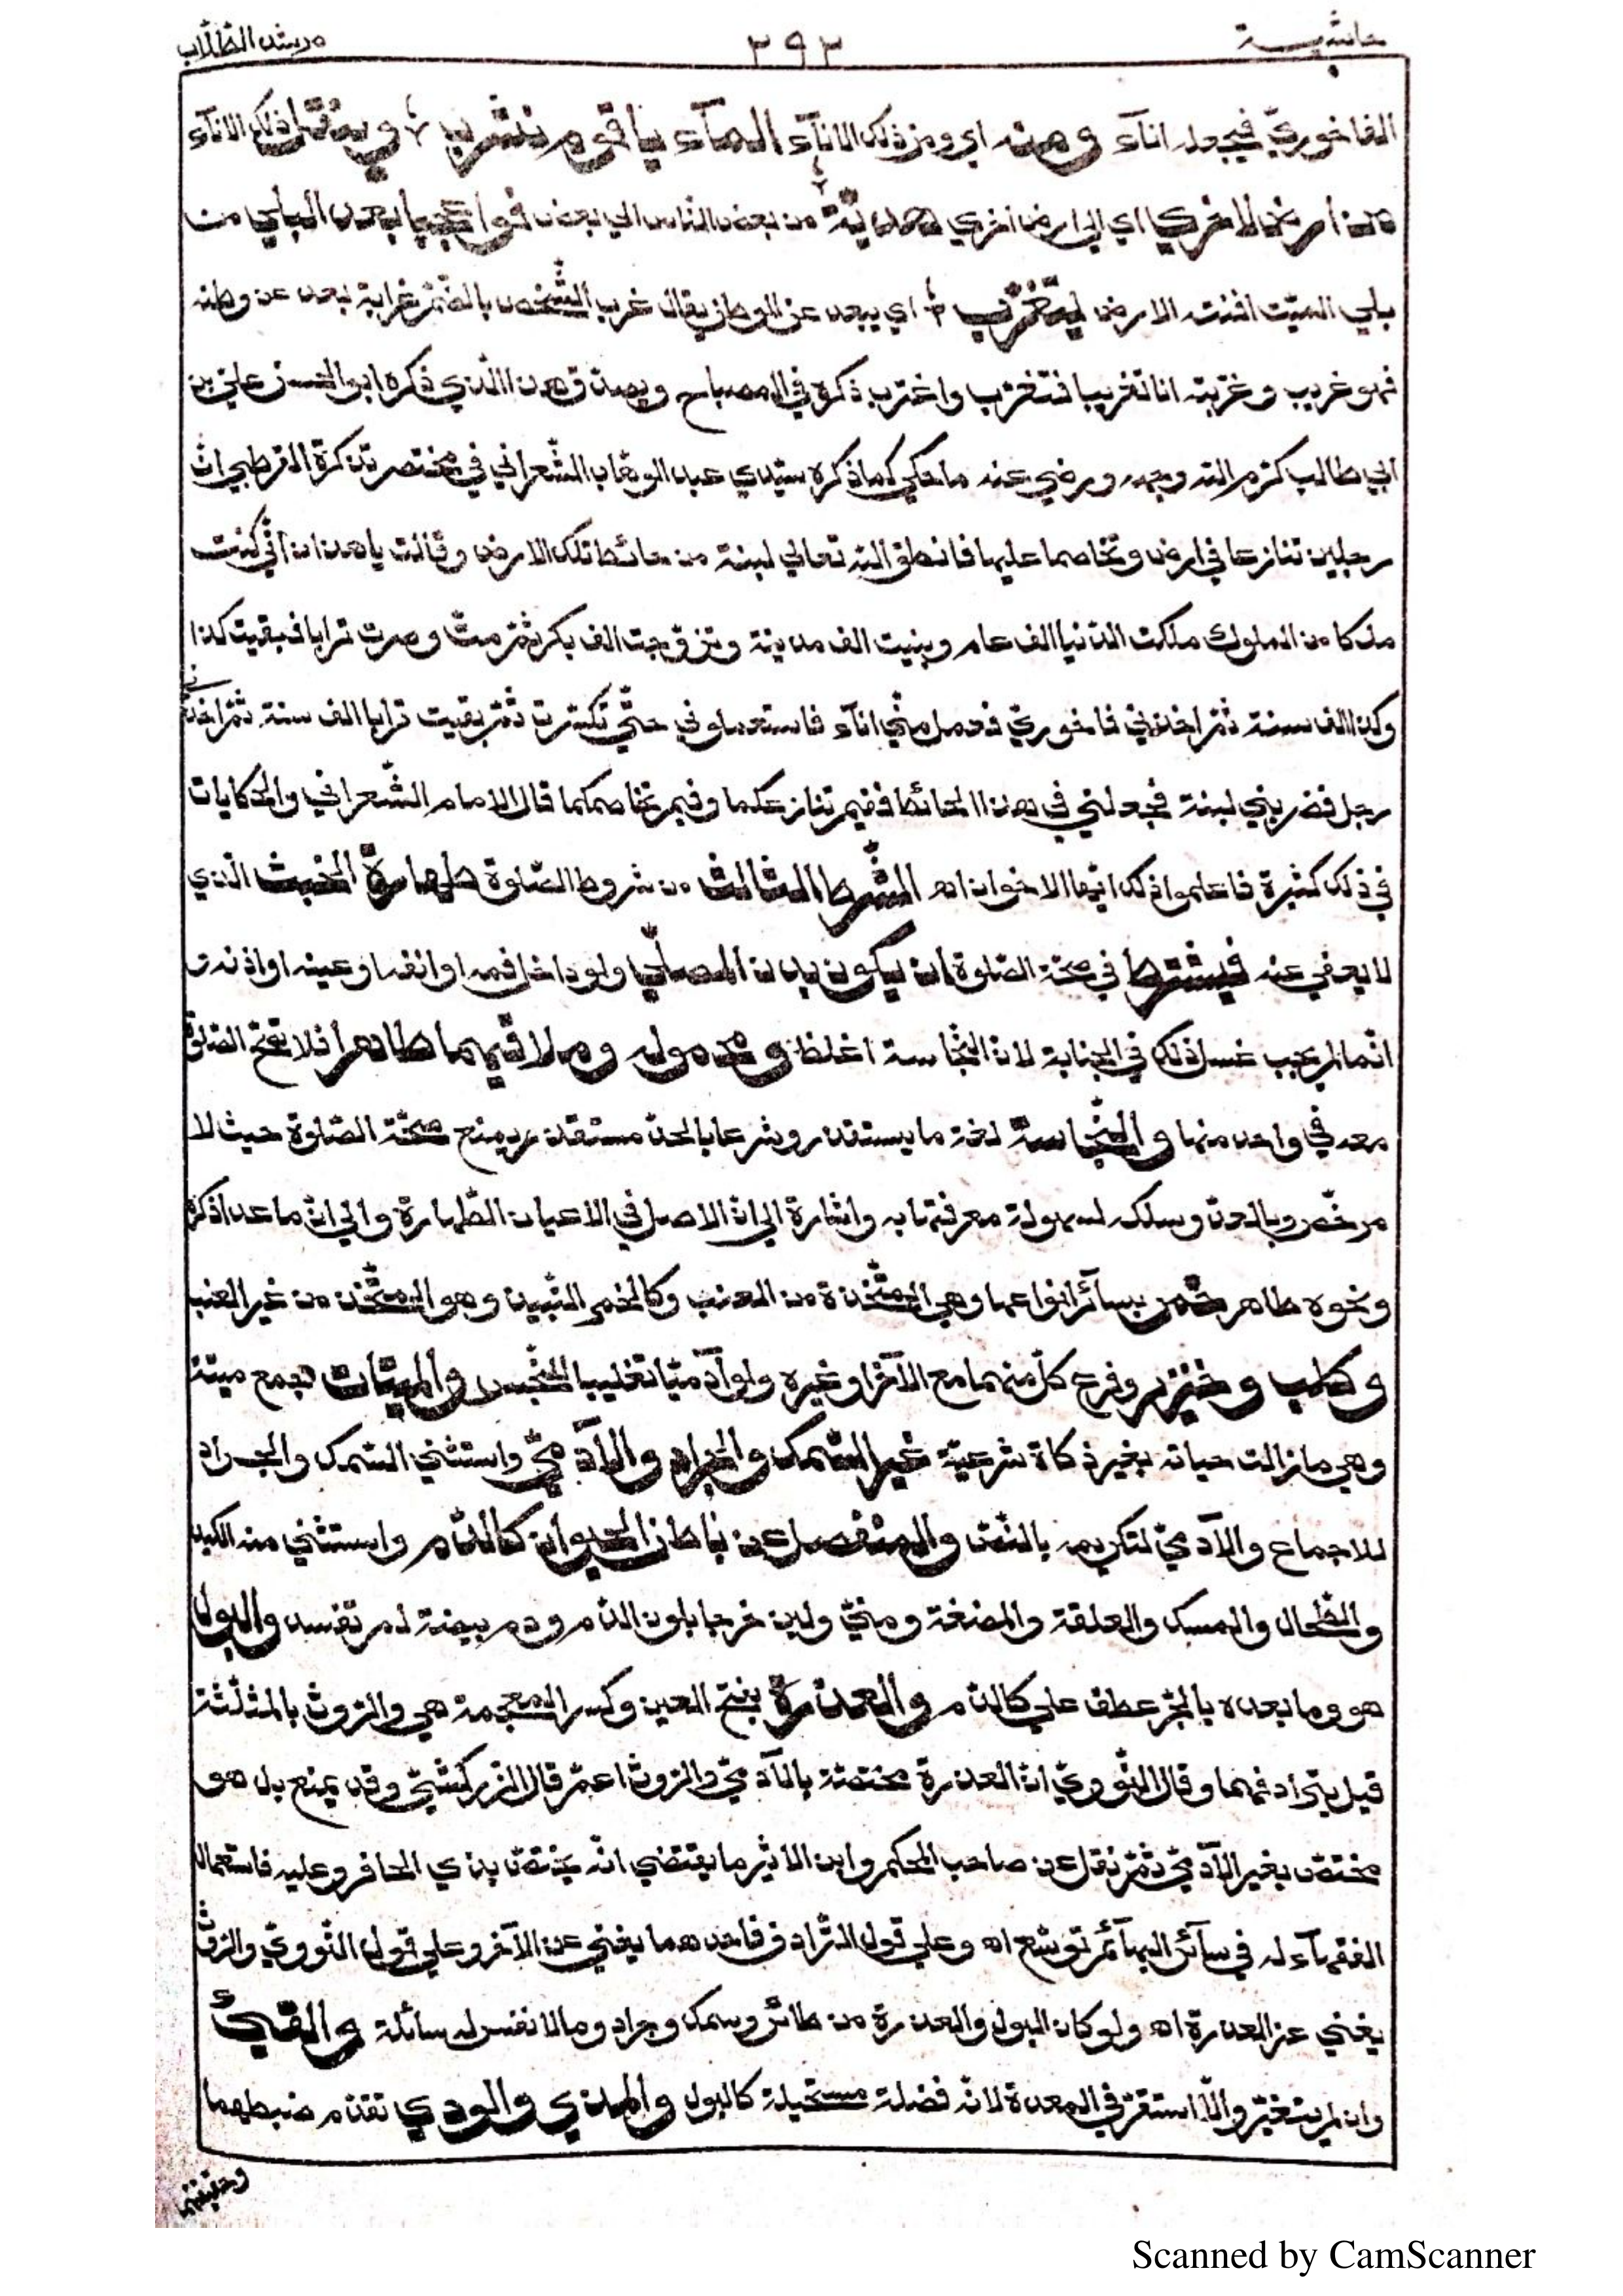 حاشية ٣٩٣ مرشد الطلاب
الفاخوريّ فيجعله اناآء ومنه اي ومن ذلك الاناآء المآء ياقوم نشرب ؛ وينقل ذلك الاناآء
من أرض لاخري اي الي ارض اخري هدية من بعض الناس الي بعض فوا عجبا بعد البلي من
بلي الميّت افنته الارض يتغرّب ؛ اي يبعد عن الوطن يقال غرب الشّخص بالضّمّ غرابة بعد عن وطنه
فهو غريب وغرّبته انا تغريبا فتغرّب واغترب ذكره في المصباح ويصدّق هذا الّذي ذكره ابو الحسن علي بن
ابي طالب كرّم اللّه وجهه ورضي عنه ما حكي كما ذكره سيّدي عبد الوهّاب الشّعراني في مختصر تذكرة القرطبي انّ
رجلين تنازعا في ارض وتخاصما عليها فانطق اللّه تعالي لبنة من حائط تلك الارض وقالت ياهذان انّي كنت
ملكا من الملوك ملكت الدّنيا الف عام وبنيت الف مدينة وتزوّجت الف بكر ثمّ متّ وصرت ترابا فبقيت كذا
وكذا الف سنة ثمّ اخذني فاخوريّ فعمل منّي اناآء فاستعملوني حتّي تكسّرت ثمّ بقيت ترابا الف سنة ثمّ اخذني
رجل فضربني لبنة فجعلني في هذا الحائط ففيم تنازعكما وفيم تخاصمكما قال الامام الشّعراني والحكايات
في ذلك كثيرة فاعلموا ذلك ايّها الاخوان اه الشّرط الثالث من شروط الصّلوة طهارة الخبث الّذي
لا يعفي عنه فيشترط في صحّة الصّلوة ان يكون بدن المصلّي ولو داخل فمه او انفه او عينه او اذنه
انّما لم يجب غسل ذلك في الجنابة لانّ النّجاسة اغلظ ومحموله وملاقيهما طاهرا فلا تصّح الصّلوة
معه في واحد منها والنّجاسة لغة ما يستقذر وشرعا بالحدّ مستقذر يمنع صحّة الصّلوة حيث لا
مرخّص وبالعدّ وسلكه لسهولة معرفتها به واشارة الي انّ الاصل في الاعيان الطّهارة والي انّ ما عدا ذكره
ونحوه طاهر خمر بسآئر انواعها وهي المتّخذة من العنب وكالخمر النّبيذ وهو المتّخذ من غير العنب
وكلب وخنزير وفرع كلّ منهما مع الآخر او غيره ولو آدميّا تغليبا للنّجس والميتات جمع ميتة
وهي ما زالت حياته بغير ذكاة شرعيّة غير السّمك والجراد والآدميّ واستثني السّمك والجراد
للاجماع والآدميّ لتكريمه بالنّصّ والمنفصل عن باطن الحيوان كالدّم واستثني منه الكبد
والطّحال والمسك والعلقة والمضغة ومنيّ ولبن خرجا بلون الدّم ودم بيضة لم تفسد والبول
هو وما بعده بالجرّ عطف علي كالدّم والعذرة بفتح العين وكسر المعجمة هي والرّوث بالمثلّثة
قيل بترادفهما وقال النّوويّ انّ العذرة مختصّة بالآدميّ والرّوث اعمّ قال الزّركشيّ وقد يمنع بل هو
مختصّ بغير الآدميّ ثمّ نقل عن صاحب المحكم وابن الاثير ما يقتضي انّه يختصّ بذي الحافر وعليه فاستعمال
الفقهآء له في سآئر البهآئم توسّع اه وعلي قول التّرادف فاحدهما يغني عن الآخر وعلي قول النّوويّ والرّوث
يغني عن العذرة اه ولو كان البول والعذرة من طائر وسمك وجراد وما لا نفس له سائلة والقيئ
وان لم يتغيّر والّا استقرّ في المعدة لانّه فضلة مستحيلة كالبول والمذي والودي تقدّم ضبطهما
وحقيقتهما
Scanned by CamScanner